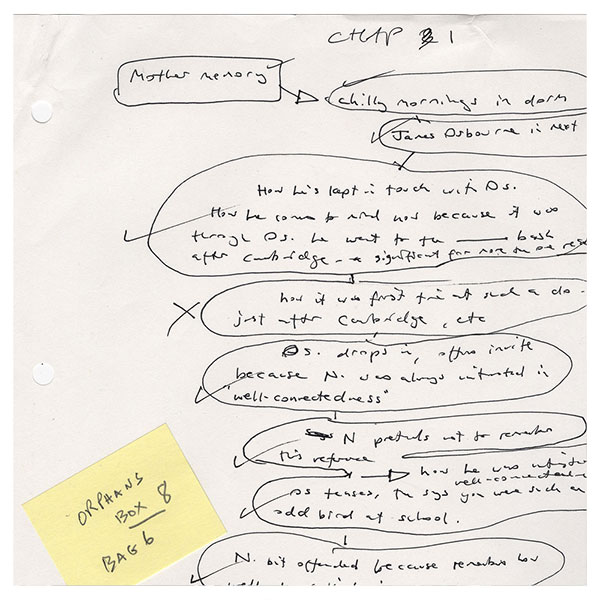 CHAP 1
Mother memory
chilly mornings in dorm
James Osbourne in next
How he's kept in touch with Os.
How he comes to mind now because it was
through Os. he went to the bash
after Cambridge - a significant for more than one
how it was first time at such a do -
just after Cambridge, etc
Os. drops in, offers invite
because N. was always interested in
"well-connectedness"
N pretends not to remember
this reference
how he was
well-connected
Os teases, then says you were such an
odd bird at school.
N. bit offended because remembers how
ORPHANS
BOX 8
BAG 6